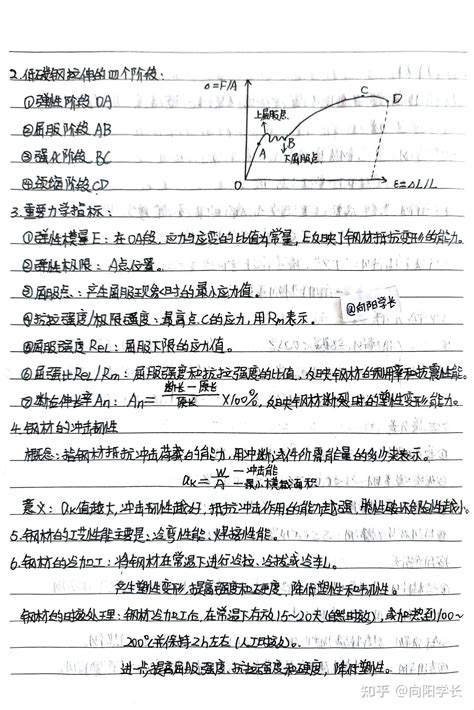 2.低碳钢拉伸的四个阶段:
①弹性阶段OA
②屈服阶段AB
③强化阶段BC
④颈缩阶段CD
σ=F/A
上屈服点
A
B
下屈服点
C
D
O
ε=ΔL/L
3.重要力学指标:
①弹性模量E:在OA段,应力与应变的比值为常量,E反映了钢材抵抗变形的能力。
②弹性极限:A点位置。
③屈服点:产生屈服现象时的最小应力值。
@向阳学长
④抗拉强度/极限强度:最高点C的应力,用Rm表示。
⑤屈服强度ReL:屈服下限的应力值。
⑥屈强比ReL/Rm:屈服强度和抗拉强度的比值,反映钢材的利用率和抗震性能。
⑦断后伸长率An:An=断长-原长/原长×100%,反映钢材断裂时的塑性变形能力。
4.钢材的冲击韧性
概念:指钢材抵抗冲击荷载的能力,用冲断试件所需能量的多少来表示。
αk=W/A —冲击能 —最小横截面积
意义:αk值越大,冲击韧性越好,抵抗冲击作用的能力越强,脆性破坏危险性越小。
5.钢材的工艺性能主要是:冷弯性能、焊接性能。
6.钢材的冷加工:将钢材在常温下进行冷拉、冷拔或冷轧。
产生塑性变形,提高强度和硬度,降低塑性和韧性。
钢材的时效处理:钢材冷加工后,在常温下存放15~20天(自然时效),或加热到100~
200℃并保持2h左右(人工时效)。
进一步提高屈服强度、抗拉强度和硬度,降低塑性。
知乎 @向阳学长